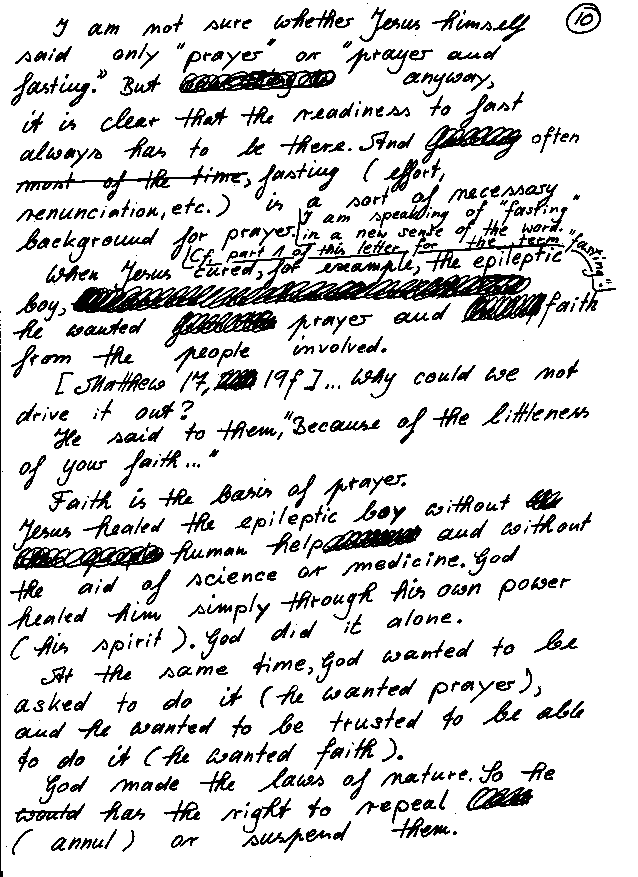 I am not sure whether Jesus himself
10
said only "prayer" or "prayer and
fasting." But anyway,
it is clear that the readiness to fast
always has to be there. And often
most of the time, fasting (effort,
renunciation, etc.) is a sort of necessary
background for prayer. I am speaking of "fasting"
in a new sense of the word.
Cf part 1 of this letter for the term "fasting".
When Jesus cured, for example, the epileptic
boy,
he wanted prayer and faith
from the people involved.
[Matthew 17, 19f]... Why could we not
drive it out?
He said to them, "Because of the littleness
of your faith..."
Faith is the basis of prayer.
Jesus healed the epileptic boy without
human help and without
the aid of science or medicine. God
healed him simply through his own power
(his spirit). God did it alone.
At the same time, God wanted to be
asked to do it (he wanted prayer),
and he wanted to be trusted to be able
to do it (he wanted faith).
God made the laws of nature. So he
would has the right to repeal
(annul) or suspend them.